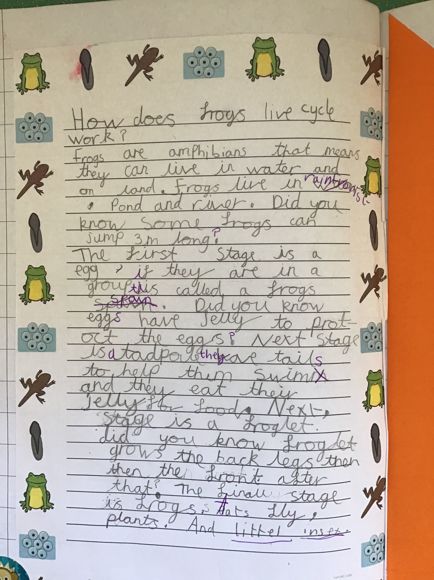 How does frogs live cycle
work?
Frogs are amphibians that means
they can live in water and
on land. Frogs live in
, Pond and river. Did you
know some frogs can
jump 3m long?
The first stage is a
egg, if they are in a
group this called a frogs
spawn. Did you know
eggs have Jelly to prot-
oct the eggs? Next stage
is a tadpole they have tails
to help them swim
and they eat their
Jelly for food. Next,
stage is a froglet.
did you know froglet
grows the back legs then
then the front after
that? The final stage
is frogs, eats fly,
plants. And littel inset.